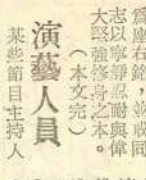 為座右銘，並收同
志以寧靜忍耐與偉
大堅強修身之本。
（本文完）
演藝人員
某些節目主持人